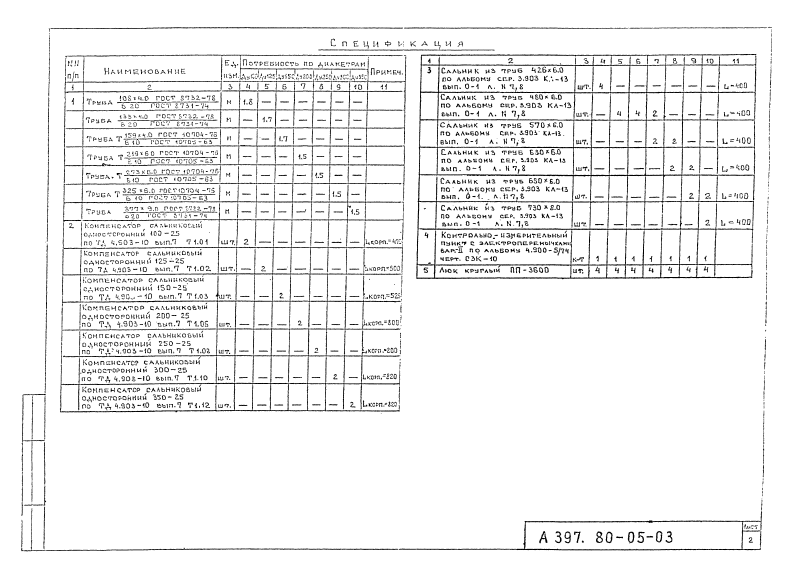 СПЕЦИФИКАЦИЯ
NN п/п НАИМЕНОВАНИЕ ЕД. ИЗМ. ПОТРЕБНОСТЬ ПО ДИАМЕТРАМ ПРИМЕЧ.
1 2 3 4 5 6 7 8 9 10 11
1 ТРУБА 108×4.0 ГОСТ 8732-78 М 1.8 — — — — — —
Б 20 ГОСТ 8731-74
ТРУБА ГОСТ 8732-78 М — 1.7 — — — — —
Б 20 ГОСТ 8731-74
ТРУБА Т 159×4.0 ГОСТ 10704-76 М — — 1.7 — — — —
Б 10 ГОСТ 10705-63
ТРУБА Т 219×6.0 ГОСТ 10704-76 М — — — 1.5 — — —
Б 10 ГОСТ 10705-63
ТРУБА Т 273×6.0 ГОСТ 10704-76 М — — — — 1.5 — —
Б 10 ГОСТ 10705-63
ТРУБА Т 325×6.0 ГОСТ 10704-76 М — — — — — 1.5 —
Б 10 ГОСТ 10705-63
ТРУБА 377×9.0 ГОСТ 8732-78 М — — — — — — 1.5
Б 20 ГОСТ 8731-74
2 КОМПЕНСАТОР САЛЬНИКОВЫЙ
ОДНОСТОРОННИЙ 100-25
ПО ТД 4.903-10 ВЫП.7 Т1.01 ШТ. 2 — — — — — —
КОМПЕНСАТОР САЛЬНИКОВЫЙ
ОДНОСТОРОННИЙ 125-25
ПО ТД 4.903-10 ВЫП.7 Т1.02 ШТ. — 2 — — — — — Lкорп.=500
КОМПЕНСАТОР САЛЬНИКОВЫЙ
ОДНОСТОРОННИЙ 150-25
ПО ТД ВЫП.7 Т1.03 ШТ. — — 2 — — — — Lкорп.=525
КОМПЕНСАТОР САЛЬНИКОВЫЙ
ОДНОСТОРОННИЙ 200-25
ПО ТД 4.903-10 ВЫП.7 ШТ. — — — 2 — — — Lкорп.=300
КОМПЕНСАТОР САЛЬНИКОВЫЙ
ОДНОСТОРОННИЙ 250-25
ПО ТД 4.903-10 ВЫП.7 ШТ. — — — — 2 — — Lкорп.=200
КОМПЕНСАТОР САЛЬНИКОВЫЙ
ОДНОСТОРОННИЙ 300-25
ПО ТД 4.903-10 ВЫП.7 Т1.10 ШТ. — — — — — 2 — Lкорп.=220
КОМПЕНСАТОР САЛЬНИКОВЫЙ
ОДНОСТОРОННИЙ 350-25
ПО ТД 4.903-10 ВЫП.7 Т1.12 ШТ. — — — — — — 2 Lкорп.=320
1 2 3 4 5 6 7 8 9 10 11
3 САЛЬНИК ИЗ ТРУБ 426×6.0
ПО АЛЬБОМУ СЕР. 3.903
ВЫП. 0-1 Л. N 7,8 ШТ. 4 — — — — — — L=400
САЛЬНИК ИЗ ТРУБ 480×6.0
ПО АЛЬБОМУ СЕР. 3.903 КЛ-13
ВЫП. 0-1 Л. N 7,8 ШТ. — 4 4 2 — — — L=400
САЛЬНИК ИЗ ТРУБ 570×6.0
ПО АЛЬБОМУ СЕР. 3.903 КЛ-13
ВЫП. 0-1 Л. N 7,8 ШТ. — — — 2 2 — — L=400
САЛЬНИК ИЗ ТРУБ 630×6.0
ПО АЛЬБОМУ СЕР. 3.903 КЛ-13
ВЫП. 0-1 Л. N 7,8 ШТ. — — — — 2 2 — L=400
САЛЬНИК ИЗ ТРУБ 650×6.0
ПО АЛЬБОМУ СЕР. 3.903 КЛ-13
ВЫП. 0-1. Л. N 7,8 ШТ. — — — — — 2 2 L=400
САЛЬНИК ИЗ ТРУБ 730×8.0
ПО АЛЬБОМУ СЕР. 3.903 КЛ-13
ВЫП. 0-1 Л. N 7,8 ШТ. — — — — — — 2 L=400
4 КОНТРОЛЬНО-ИЗМЕРИТЕЛЬНЫЙ
ПУНКТ С
ВАР-II ПО АЛЬБОМУ 4.900-5/74
ЧЕРТ. СЗК-10 К-Т 1 1 1 1 1 1 1
5 ЛЮК КРУГЛЫЙ ПП-3600 ШТ. 4 4 4 4 4 4 4
А 397. 80-05-03
ЛИСТ
2